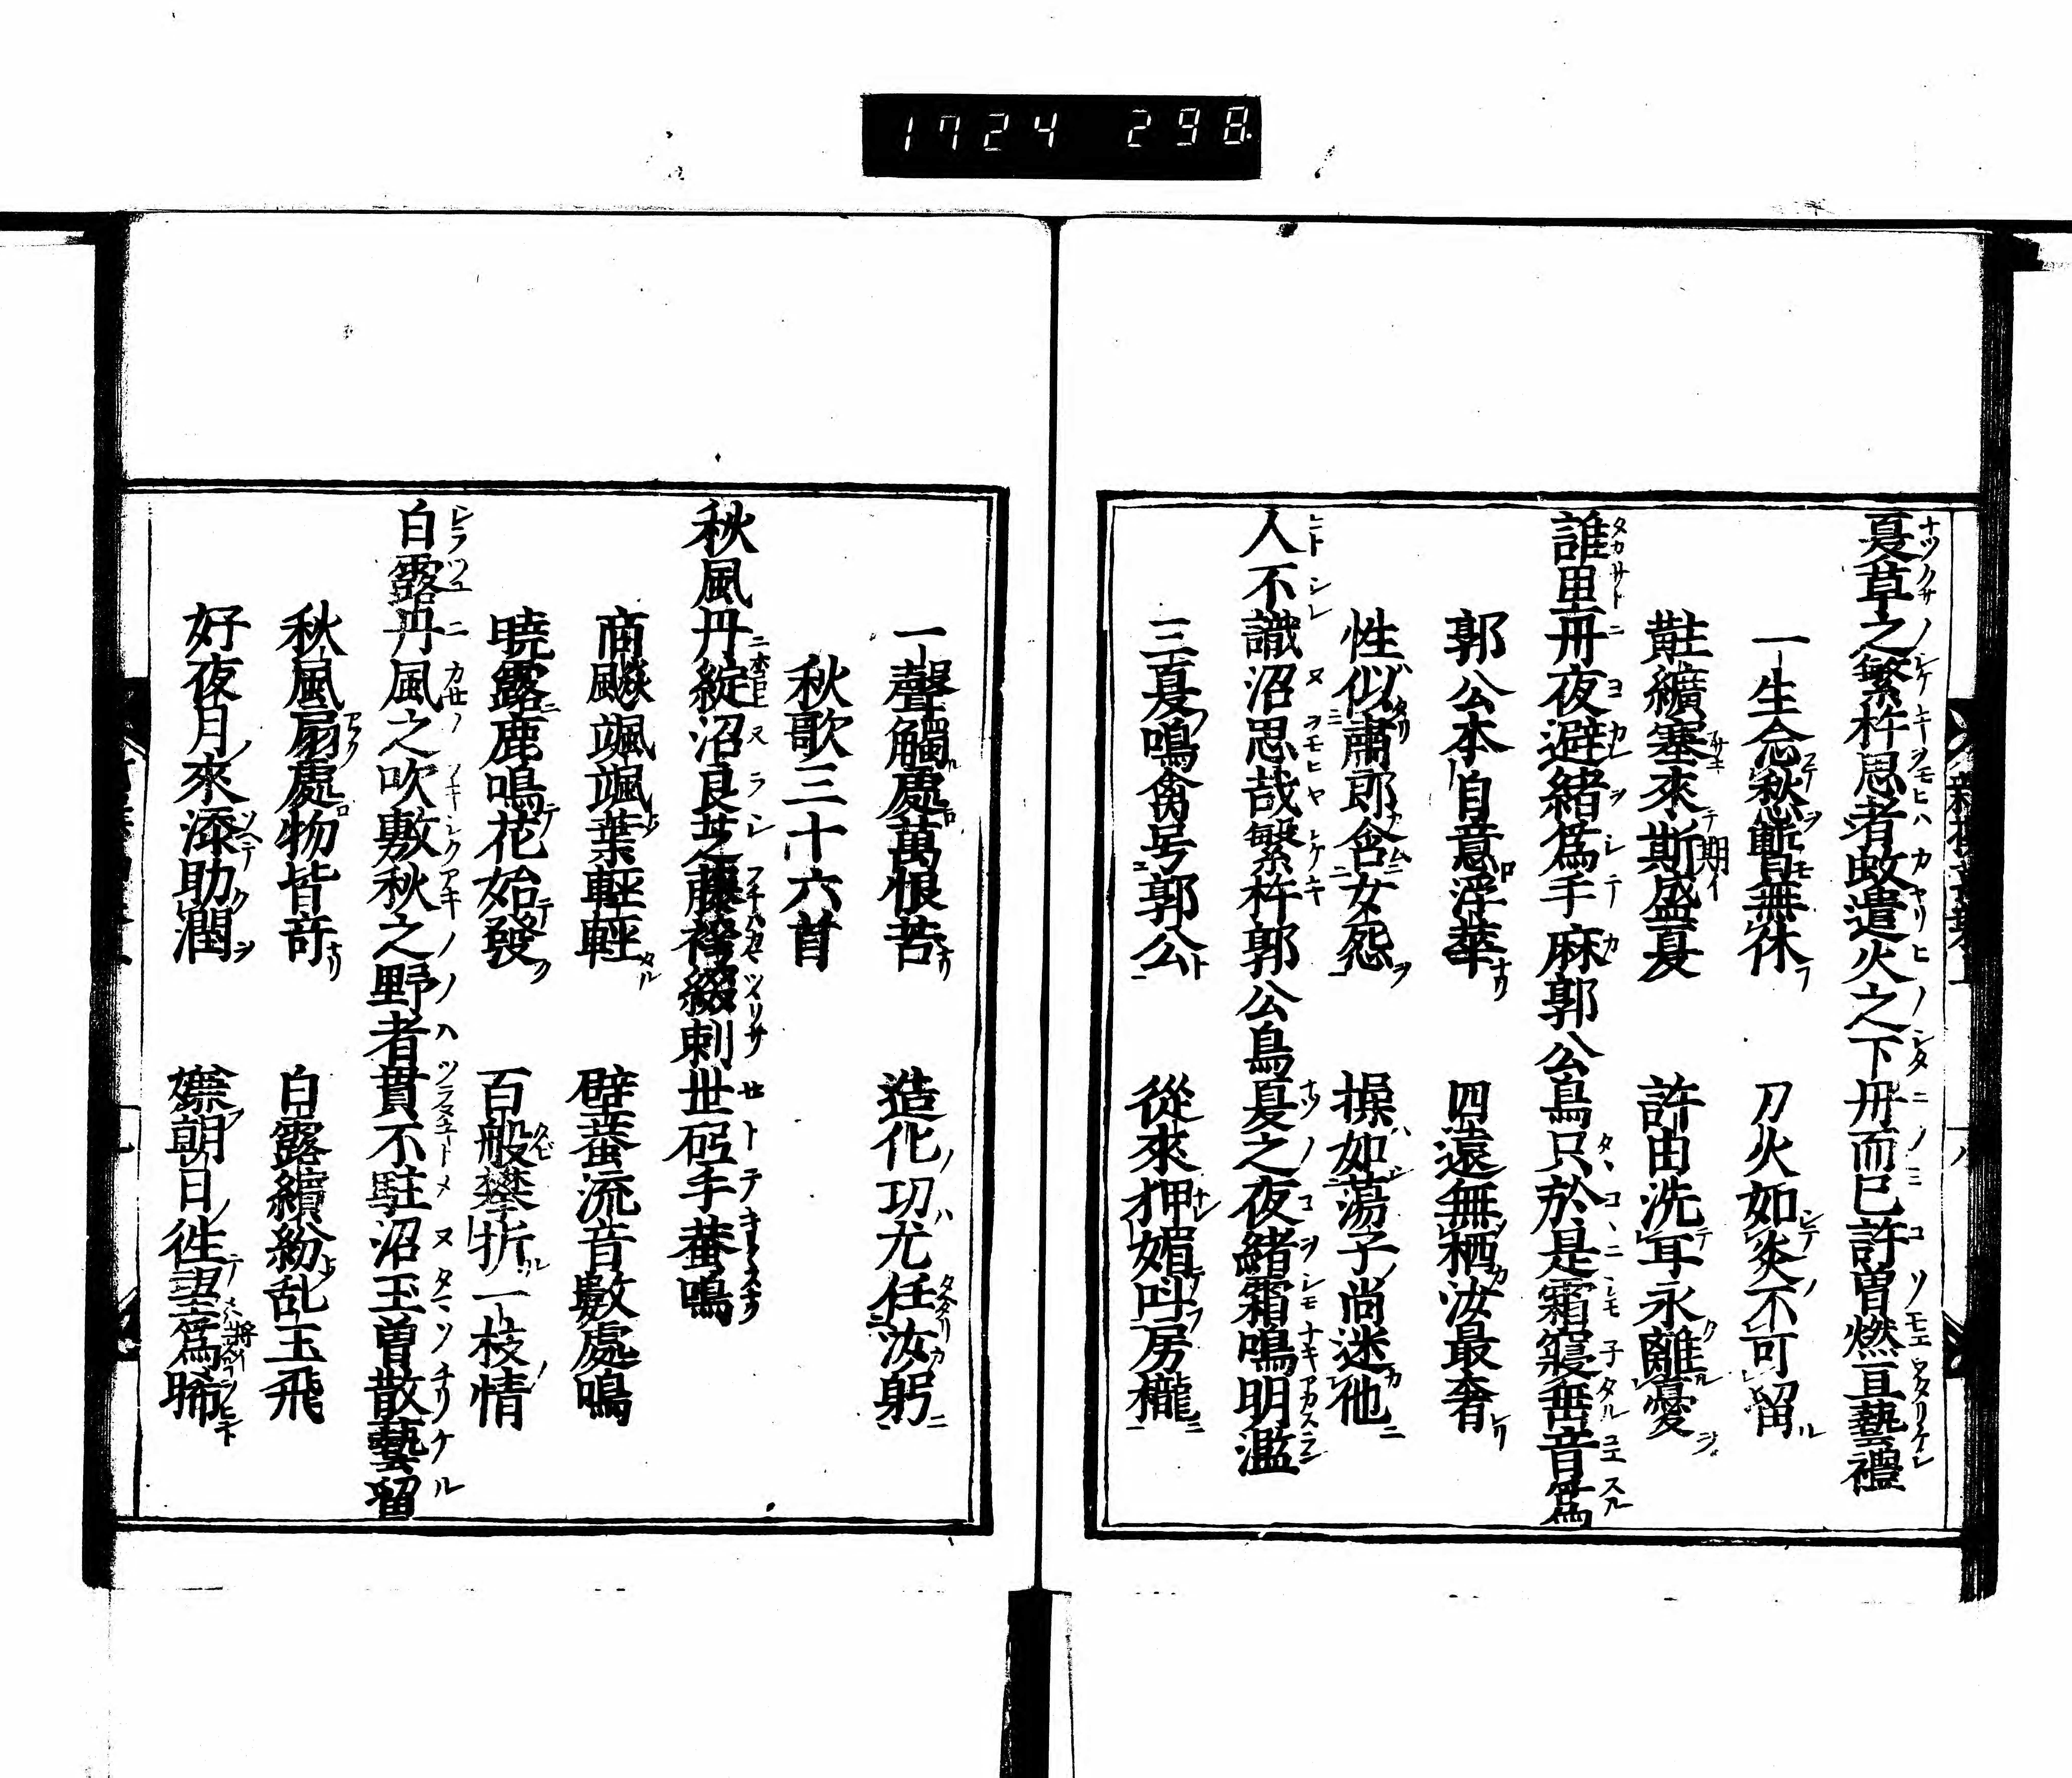 1724 298
夏草之繁杵思者蚊遣火之下丹而已許曽燃亘藝禮
一生念愁暫無休 刀火如炎不可留
黈纊塞來斯盛夏 許由洗耳永離憂
誰里丹夜避緒為手麻郭公鳥只於是霜寢垂音爲
郭公本自意浮華 四遠無栖汝最奢
性似蕭郎含女怨 操如蕩子尚迷他
人不識沼思哉繁杵郭公鳥夏之夜緒霜鳴明濫
三夏鳴禽号郭公 從來狎媚叫房櫳
一聲觸處萬恨苦 造化功尤任汝躬
秋歌三十六首
秋風丹綻沼良芝藤袴綴刺世砥手蛬鳴
商飈颯颯葉輕輕 壁蛬流音數處鳴
暁露鹿鳴花始發 百般攀折一枝情
白露丹風之吹敷秋之野者貫不駐沼玉曽散藝留
秋風扇處物皆奇 白露繽紛乱玉飛
好夜月來添助潤 嫌朝日徃望爲晞